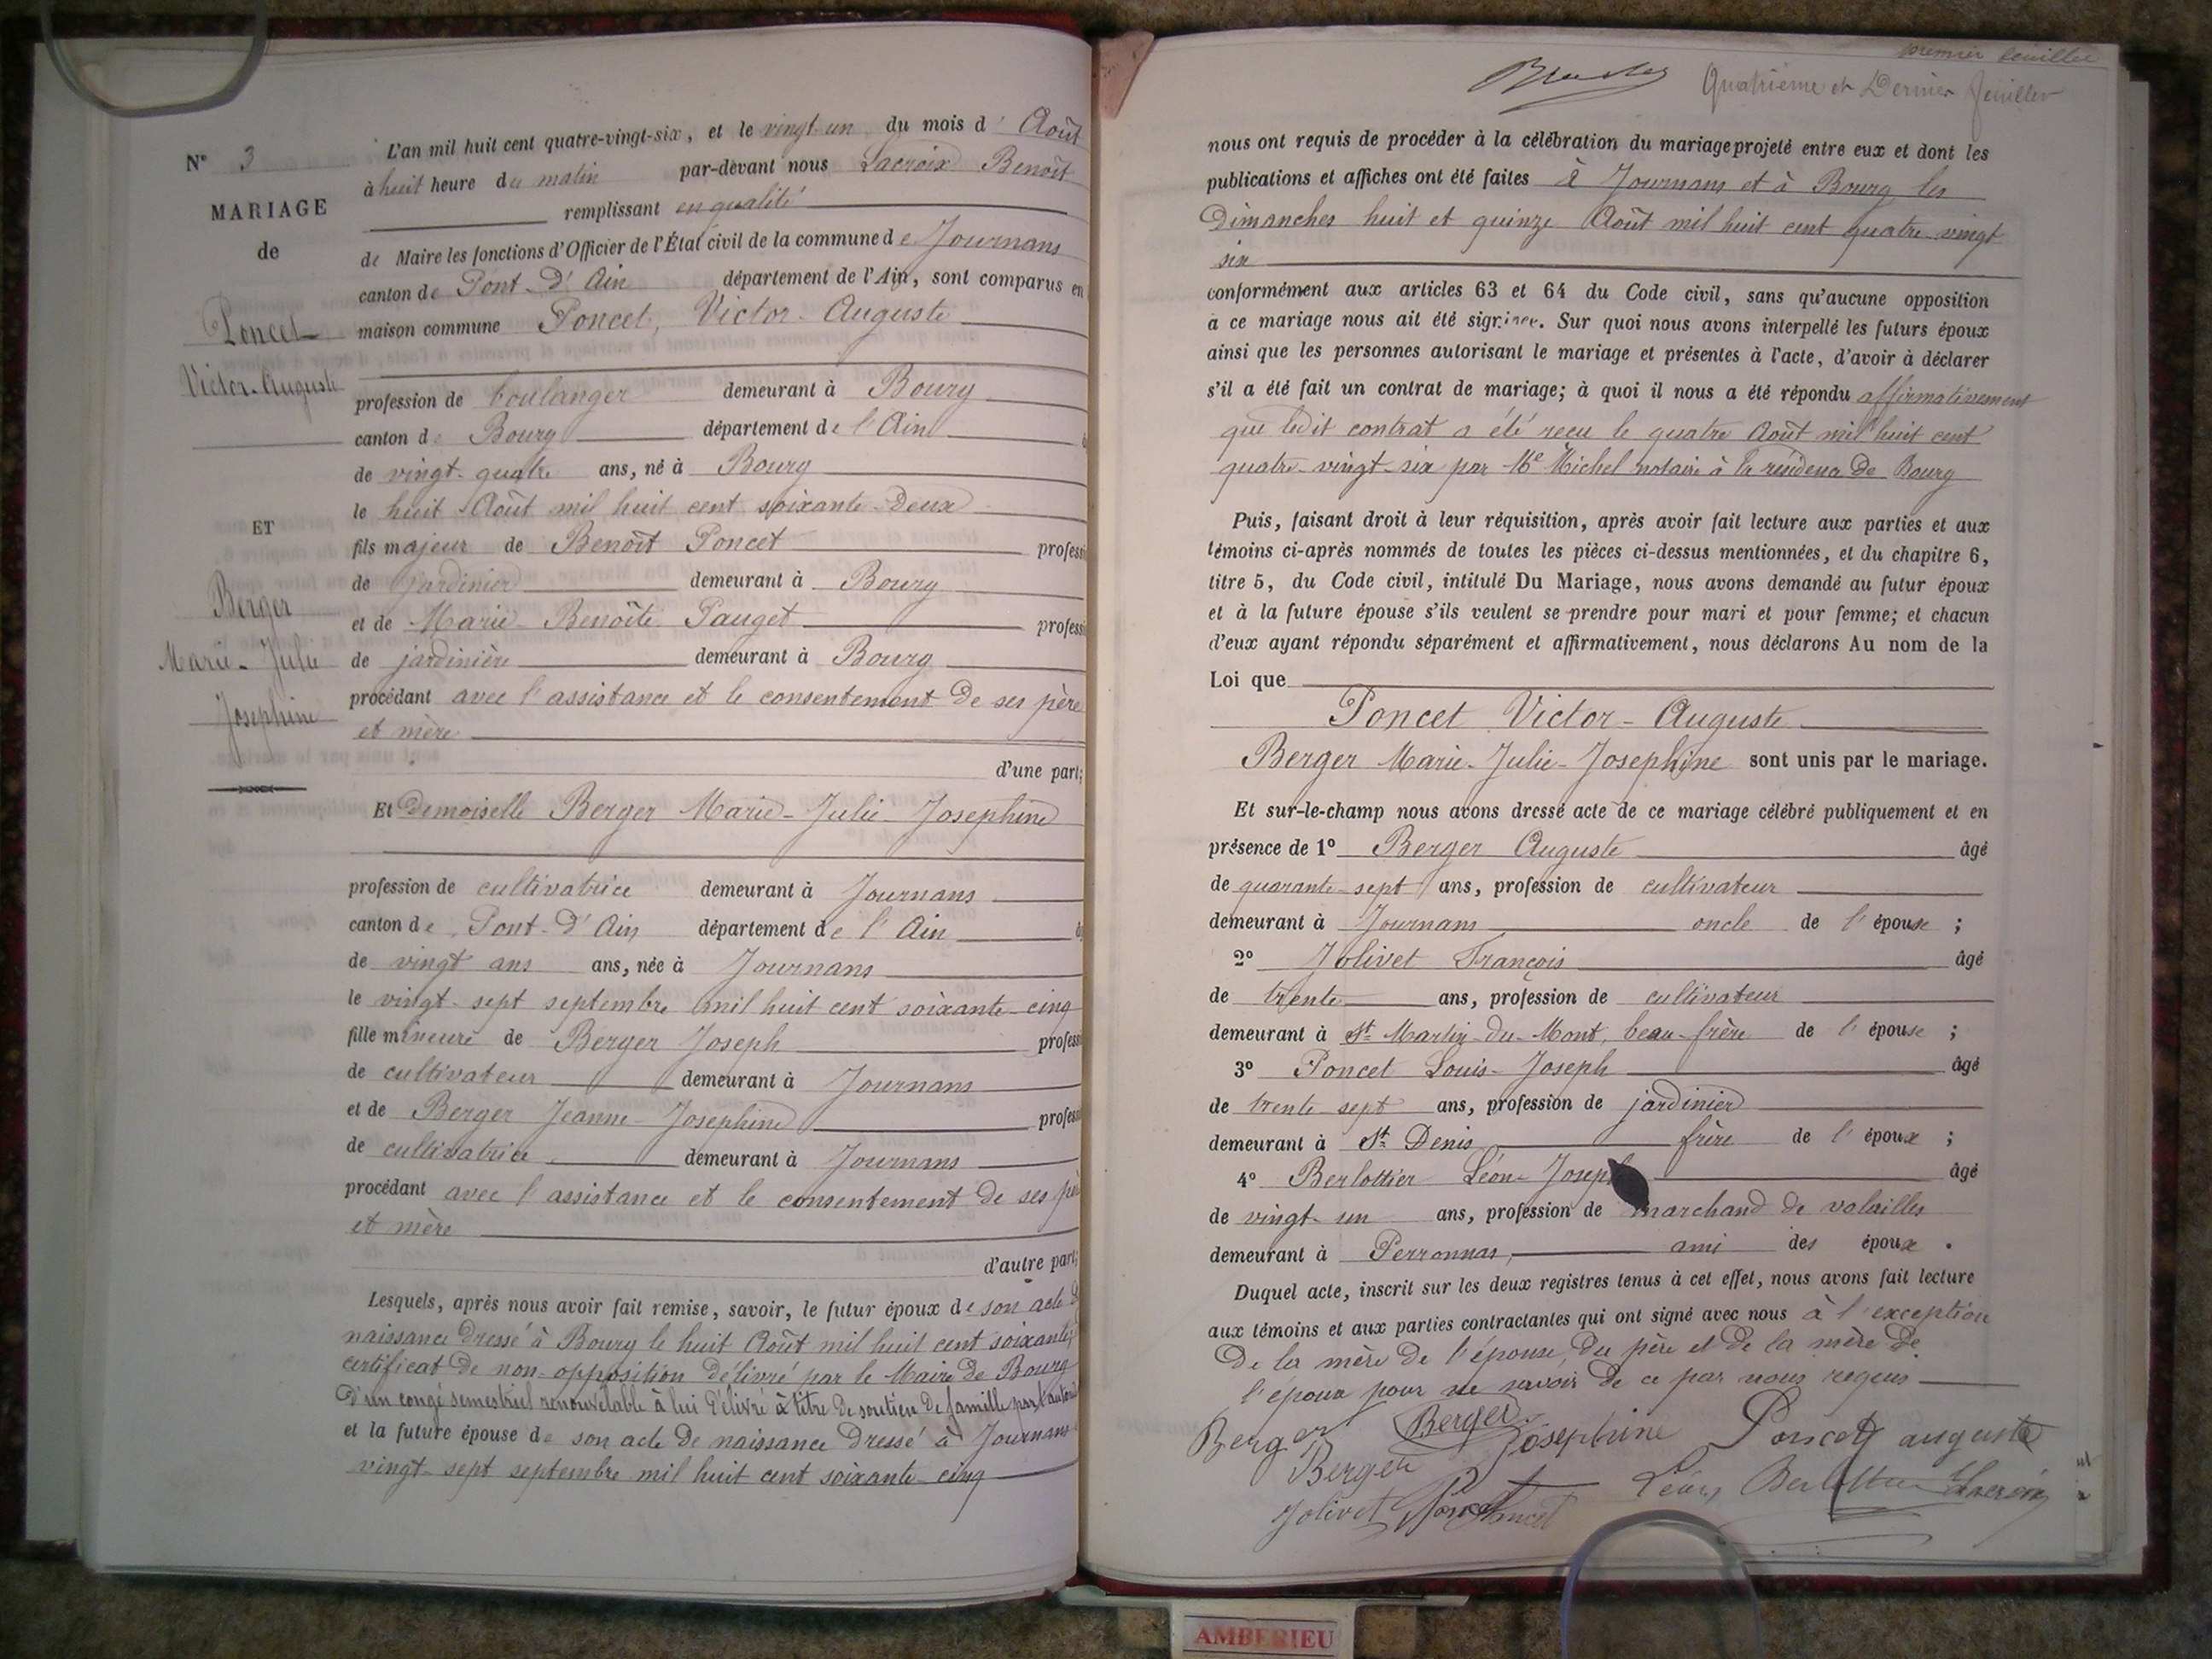 N° 3
MARIAGE
de
Poncet
Victor-Auguste
ET
Berger
Marie-Julie
Josephine
L'an mil huit cent quatre-vingt-six, et le vingt-un du mois d'Août
à huit heure du matin par-devant nous Lacroix Benoît
remplissant en qualité
de Maire les fonctions d'Officier de l'État civil de la commune de Journans
canton de Pont-d'Ain département de l'Ain, sont comparus en
maison commune Poncet, Victor-Auguste
profession de boulanger demeurant à Bourg
canton de Bourg département de l'Ain
de vingt-quatre ans, né à Bourg
le huit Août mil huit cent soixante-Deux
fils majeur de Benoît Poncet professi
de jardinier demeurant à Bourg
et de Marie-Benoîte Pauget professi
de jardinière demeurant à Bourg
procédant avec l'assistance et le consentement de ses père
et mère
d'une part;
Et Demoiselle Berger Marie-Julie-Josephine
profession de cultivatrice demeurant à Journans
canton de Pont-d'Ain département de l'Ain
de vingt ans ans, née à Journans
le vingt-sept septembre mil huit cent soixante-cinq
fille mineure de Berger Joseph professi
de cultivateur demeurant à Journans
et de Berger Jeanne-Josephine professi
de cultivatrice demeurant à Journans
procédant avec l'assistance et le consentement de ses
et mère
d'autre part;
Lesquels, après nous avoir fait remise, savoir, le futur époux de son acte
naissance dressé à Bourg le huit Août mil huit cent soixante
certificat de non-opposition délivré par le Maire de Bourg
d'un congé semestriel renouvelable à lui délivré à titre de soutien de famille par
et la future épouse de son acte de naissance dressé à Journans
vingt-sept septembre mil huit cent soixante-cinq
premier feuillet
Quatrième et Dernier feuillet
nous ont requis de procéder à la célébration du mariage projeté entre eux et dont les
publications et affiches ont été faites à Journans et à Bourg les
Dimanches huit et quinze Août mil huit cent quatre-vingt
six
conformément aux articles 63 et 64 du Code civil, sans qu'aucune opposition
à ce mariage nous ait été signifiée. Sur quoi nous avons interpellé les futurs époux
ainsi que les personnes autorisant le mariage et présentes à l'acte, d'avoir à déclarer
s'il a été fait un contrat de mariage; à quoi il nous a été répondu affirmativement
que ledit contrat a été reçu le quatre Août mil huit cent
quatre-vingt-six par Me Michel notaire à la résidence de Bourg
Puis, faisant droit à leur réquisition, après avoir fait lecture aux parties et aux
témoins ci-après nommés de toutes les pièces ci-dessus mentionnées, et du chapitre 6,
titre 5, du Code civil, intitulé Du Mariage, nous avons demandé au futur époux
et à la future épouse s'ils veulent se prendre pour mari et pour femme; et chacun
d'eux ayant répondu séparément et affirmativement, nous déclarons Au nom de la
Loi que
Poncet Victor-Auguste
Berger Marie-Julie-Josephine sont unis par le mariage.
Et sur-le-champ nous avons dressé acte de ce mariage célébré publiquement et en
présence de 1° Berger Auguste âgé
de quarante-sept ans, profession de cultivateur
demeurant à Journans oncle de l'épouse ;
2° Jolivet François âgé
de trente ans, profession de cultivateur
demeurant à St Martin-du-Mont, beau-frère de l'épouse ;
3° Poncet Louis-Joseph âgé
de trente-sept ans, profession de jardinier
demeurant à St Denis frère de l'époux ;
4° Berlottier Léon-Joseph âgé
de vingt-un ans, profession de marchand de volailles
demeurant à Perronnas, ami des époux .
Duquel acte, inscrit sur les deux registres tenus à cet effet, nous avons fait lecture
aux témoins et aux parties contractantes qui ont signé avec nous à l'exception
De la mère de l'épouse, du père et de la mère de
l'époux pour ne savoir de ce par nous requis
Berger Berger Josephine Poncet auguste
Berger Léon Berlottier Lacroix
Jolivet Poncet
AMBERIEU